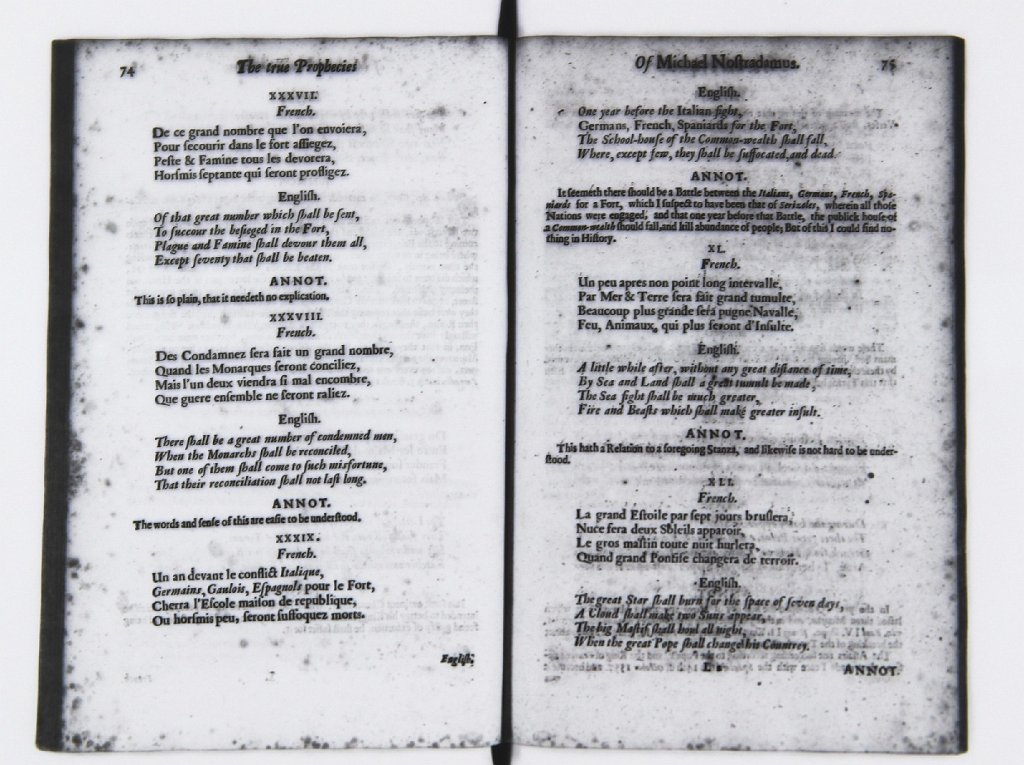 74
The true Propheciei
XXXVII.
French.
De ce grand nombre que l'on envoiera,
Pour secourir dans le fort assiegez,
Peste & Famine tous les devorera,
Horsmis septante qui seront profligez.
English.
Of that great number which shall be sent,
To succour the besieged in the Fort,
Plague and Famine shall devour them all,
Except seventy that shall be beaten.
ANNOT.
This is so plain, that it needeth no explication.
XXXVIII.
French.
Des Condamnez sera fait un grand nombre,
Quand les Monarques seront conciliez,
Mais l'un deux viendra si mal encombre,
Que guere ensemble ne seront raliez.
English.
There shall be a great number of condemned men,
When the Monarchs shall be reconciled,
But one of them shall come to such misfortune,
That their reconciliation shall not last long.
ANNOT.
The words and sense of this are easie to be understood.
XXXIX.
French.
Un an devant le conflict Italique,
Germains, Gaulois, Espagnols pour le Fort,
Cherra l'Escole maison de republique,
Ou horsmis peu, seront suffoquez morts.
English.
Of Michael Nostradamus.
75
English.
One year before the Italian fight,
Germans, French, Spaniards for the Fort,
The School-house of the Common-wealth shall fall,
Where, except few, they shall be suffocated, and dead.
ANNOT.
It seemeth there should be a Battle between the Italians, Germans, French, Spa-
niards for a Fort, which I suspect to have been that of Serizoles, wherein all those
Nations were engaged, and that one year before that Battle, the publick house of
a Common-wealth should fall, and kill abundance of people; But of this I could find no-
thing in History.
XL.
French.
Un peu apres non point long intervalle,
Par Mer & Terre sera fait grand tumulte,
Beaucoup plus grande sera pugne Navalle,
Feu, Animaux, qui plus seront d'Insulte.
English.
A little while after, without any great distance of time,
By Sea and Land shall a great tumult be made,
The Sea fight shall be much greater,
Fire and Beasts which shall make greater insult.
ANNOT.
This hath a Relation to a foregoing Stanza, and likewise is not hard to be under-
stood.
XLI.
French.
La grand Estoile par sept jours bruslera,
Nuce fera deux Soleils apparoir,
Le gros mastin toute nuit hurlera,
Quand grand Pontife changera de terroir.
English.
The great Star shall burn for the space of seven days,
A Cloud shall make two Suns appear,
The big Mastif shall houl all night,
When the great Pope shall change his Countrey.
L
ANNOT.